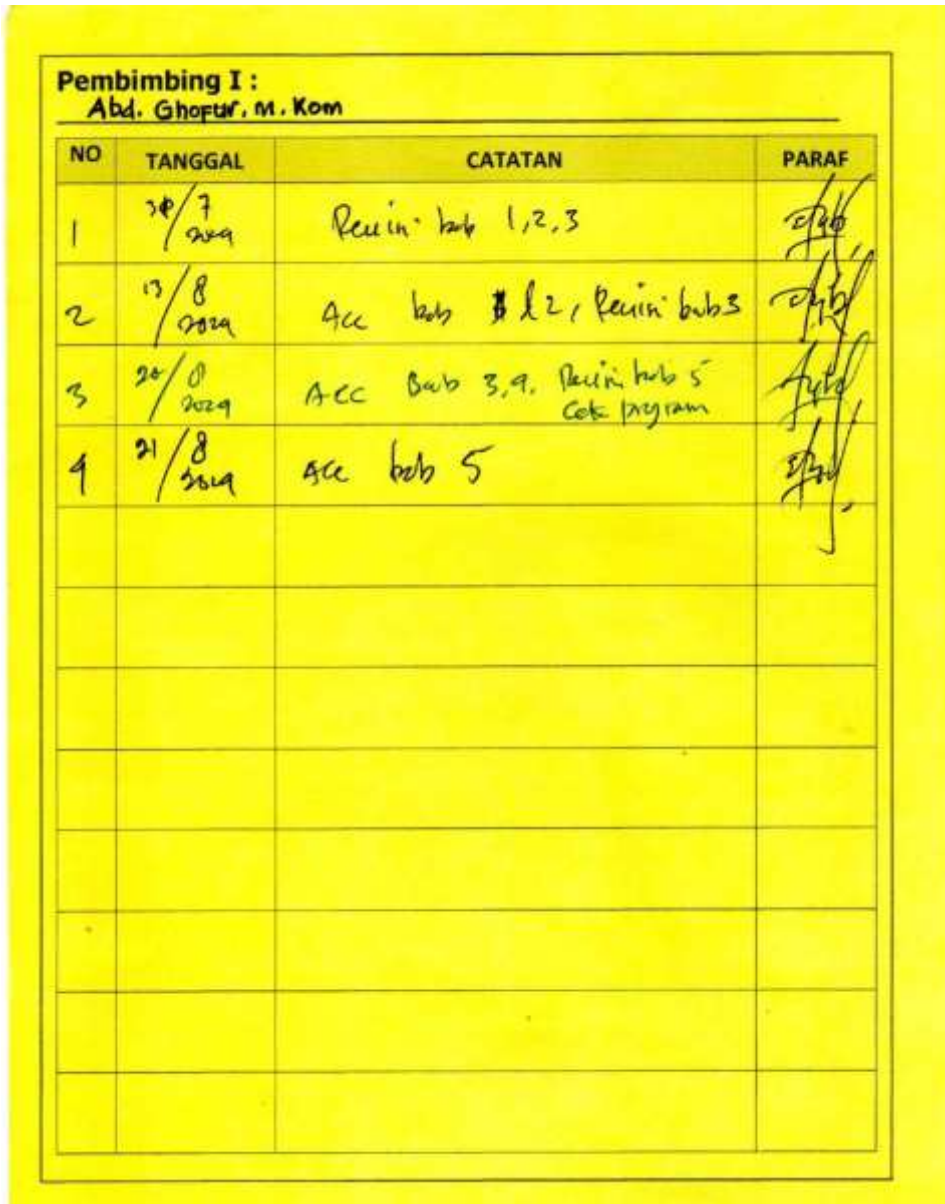 Pembimbing I :
Abd. Ghofur, M. Kom
NO TANGGAL CATATAN PARAF
1 30/7 2024 Revisi bab 1,2,3
2 13/8 2024 Acc bab 1 2, Revisi bab 3
3 20/8 2024 Acc Bab 3,4. Revisi bab 5
Cek program
4 21/8 2024 Acc bab 5